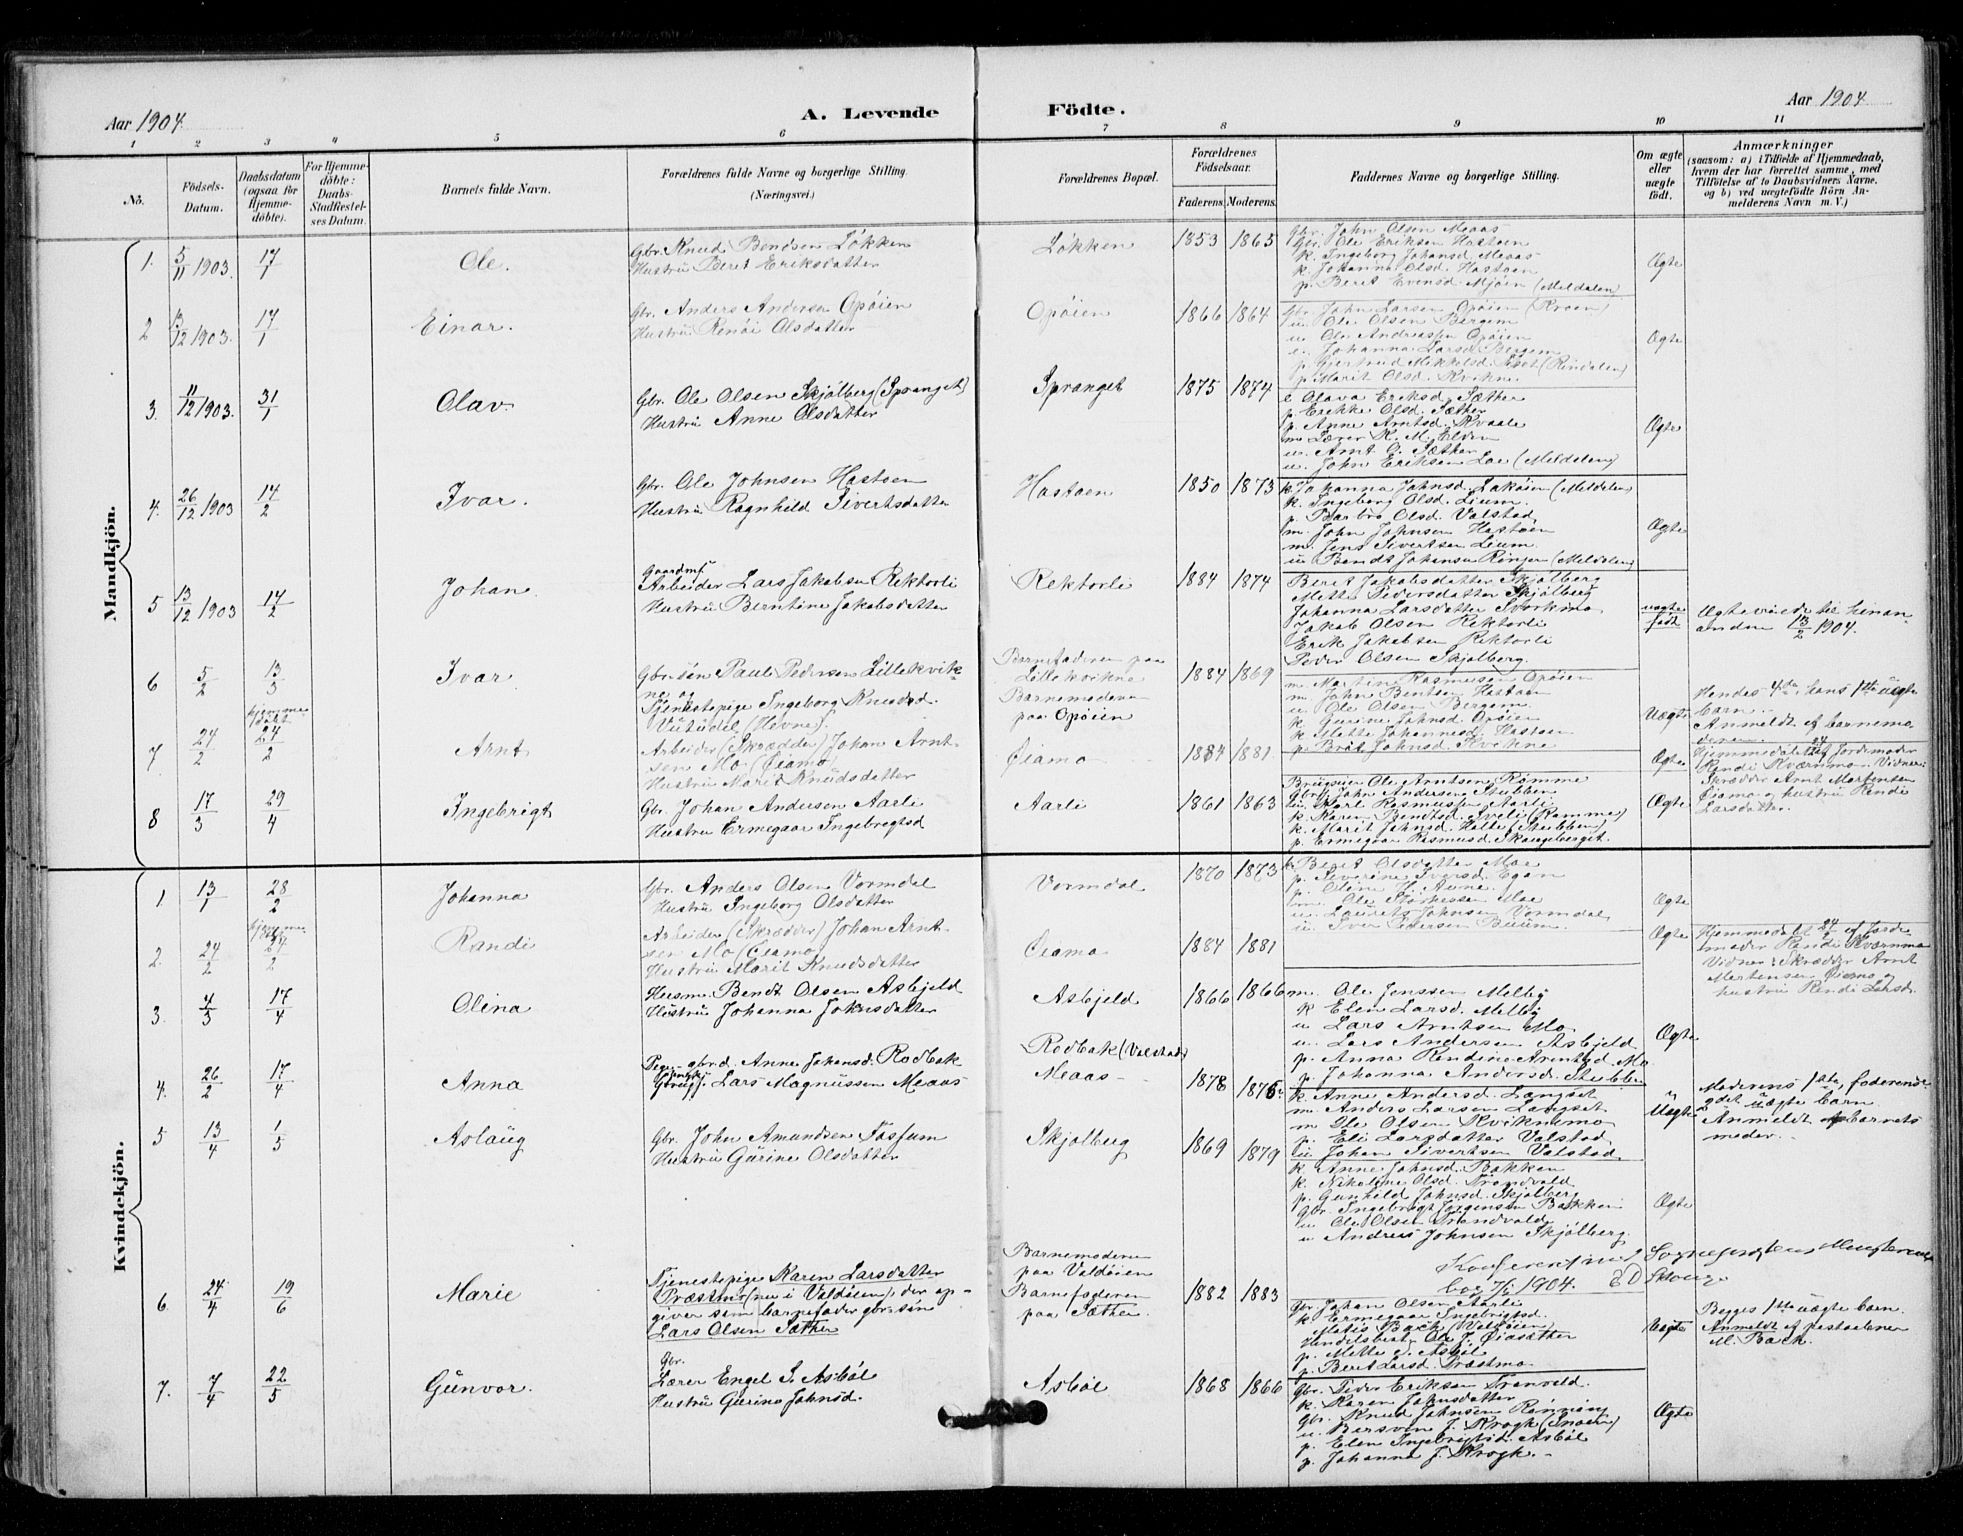 Aar 1904.
A. Levende Födte.
Aar 1904
1 2 3 4 5 6 7 8 9 10 11
No.
Födsels-Datum.
Daabsdatum (ogsaa for Hjemme-döbte).
For Hjemme-döbte: Daabs-Stadfæstel-ses Datum.
Barnets fulde Navn.
Forældrenes fulde Navne og borgerlige Stilling.
(Næringsvei.)
Forældrenes Bopæl.
Forældrenes Födselsaar.
Faderens. Moderens.
Faddernes Navne og borgerlige Stilling.
Om ægte eller uægte födt.
Anmærkninger
(saasom: a) i Tilfælde af Hjemmedaab,
hvem der har forrettet samme, med
Tilföielse af to Daabsvidners Navne.
og b) ved uægtefödte Börn An-
melderens Navn m. V.)
Mandkjön.
1. 5/11 1903. 17/1 Ole.
Gbr. Knud Bendsen Løkken
Hustru Beret Eriksdatter
Løkken 1853 1865
Gbr. John Olsen Meaas
Gbr. Ole Eriksen Hastoen
k. Ingeborg Johansd. Meaas
k. Johanna Olsd. Hastoen
p. Beret Evensd. Mjøen (Meldalen)
Ægte
2 13/12 1903. 17/1 Einar.
Gbr. Anders Andersen Opøien
Hustru Renøi Olsdatter
Opøien 1866 1864
Gbr. John Larsen Opøien (Kroen)
u. Ole Olsen Bergem
u. Ole Andreassen Opøien
e. Johanna Larsd. Bergem
p. Gjertrud Mikkelsd. (Rindalen)
p. Marit Olsd. Kvikne.
Ægte
3. 11/12 1903. 31/1 Olav.
Gbr. Ole Olsen Skjølberg (Spranget)
Hustru Anne Olsdatter
Spranget 1875 1874
e Olava Eriksd. Sæther
p. Erikke Olsd. Sæther
p. Anne Arntsd. Kvaale
m. Lærer K. M. Elden
u. Arnt O. Sæther
u. John Eriksen Loe (Meldalen)
Ægte
4. 26/12 1903 14/2 Ivar.
Gbr. Ole Johnsen Hastoen
Hustru Ragnhild Sivertsdatter
Hastoen 1850 1873
k. Johanna Johnsd. Lakøien (Meldalen)
k. Ingeborg Olsd. Lium
p. Barbro Olsd. Valstad,
m. John Johnsen Hastoen
m. Jens Sivertsen Lium.
u Bendt Johansen Ringen (Meldalen)
Ægte
5 13/12 1903 14/2 Johan.
Gaardmf.
Arbeider Lars Jakobsen Rektorli
Hustru Berntine Jakobsdatter
Rektorli 1884 1874
Beret Jakobsdatter Skjølberg
Mette Pedersdatter Skjølberg
Johanna Larsdatter Svorkmo
Jakob Olsen Rektorli
Erik Jakobsen Rektorli
Peder Olsen Skjølberg.
uægte født
Ægteviede til hinan-
anden 13/2 1904.
6 5/2 13/3 Ivar
Gbr.søn Paul Pedersen Lillekvik-
ne og
Tjenestepige Ingeborg Knudsd.
Vutudal (Hevne).
Barnefaderen paa
Lillekvikne
Barnemoderen
paa Opøien
1884 1869
m. Martin Rasmusen Opøien
m. John Bentsen Hastoen
u. Ole Olsen Bergem
k. Gurine Johnsd. Opøien
k. Mette Johannesd. Hastoen
p. Brit Johnsd. Kvikne
Uægte
Hendes 4de, hans 1ste uægte
barn.
Anmeldt af barnemo
deren.
7 24/2 hjemme-døbt 24/2 Arnt
Arbeider (Skrædder) Johan Arnt-
sen Mo (Øiamo)
Hustru Marit Knudsdatter
Øiamo 1884 1881
Ægte
Hjemmedøbt 24/2 af Jordemoder
Randi Kværnmo. Vidner:
Skrædder Arnt Mortensen
Øiamo og hustru Randi
Larsdatter.
8 17/3 29/4 Ingebrigt
Gbr. Johan Andersen Aarli
Hustru Ermegaar Ingebrigtsd
Aarli 1861 1863
Brugseier Ole Arntsen Ramme
Gbr. John Andersen Stubben
u. Karl Rasmussen Aarli
k. Karen Bendtsd. Sveli (Ramme)
k. Marit Johnsd. Holte (Stubben)
p. Ermegaar Rasmusd. Skaugeberget.
Ægte
Kvindekjön.
1 13/1 28/2 Johanna
Gbr. Anders Olsen Vormdal
Hustru Ingeborg Olsdatter
Vormdal 1870 1873
k. Beret Olsdatter Moe
p. Severine Iversd. Egan
p. Oline H. Aune.
m. Ole Størkessen Moe
u. Laurits Johnsen Vormdal
u. Iver Pedersen Buum.
Ægte
2. 24/2 hjemme-døbt 24/2 Randi
Arbeider (Skrædder) Johan Arnt-
sen Mo (Øiamo)
Hustru Marit Knudsdatter
Øiamo 1884 1881
Ægte
Hjemmedøbt 24/2 af Jorde
moder Randi Kværnmo
Vidner: Skrædder Arnt
Mortensen Øiamo og
hustru Randi Larsd.
3. 4/3 17/4 Olina
Husm. Bendt Olsen Asbjeld
Hustru Johanna Johnsdatter
Asbjeld 1866 1866
m. Ole Jenssen Melby
k Elen Larsd. Melby
u Lars Arntsen Mo
u. Lars Andersen Asbjeld
p. Anna Randine Arntsd. Mo
p. Johanna Andersd. Stubben
Ægte
4. 26/2 17/4 Anna
Pige gbr.d. Anne Johansd. Rodbak
Lars Magnussen Meaas
Rodbak (Valstad)
Meaas
1878 1876
k. Anne Andersd. Langset
m. Anders Larsen Langset
m Ole Olsen Kviknemo
p. Eli Larsdatter Valstad
u Johan Sivertsen Valstad
Uægte
Moderens 1ste, faderens
2det uægte barn
Anmeldt af barnets
moder.
5 13/4 1/5 Aslaug
Gbr. John Amundsen Fosfum
Hustru Gurine Olsdatter
Skjølberg 1869 1879
k. Anne Johnsd. Bakken
k. Nikoline Olsd. Tronvold
p. Gunhild Johnsd. Skjølberg
Gbr. Ingebrigt Jørgensen Bakken
u Ole Olsen Tronvold
u Andreas Johnsen Skjølberg.
Ægte
Konfereret med Sogneprestens Ministerialbog
7/5 1904. ED
6. 24/4 19/6 Marie
Tjenestepige Karen Larsdatter
Præstmo (nu i Valdøien), der op-
giver som barnefader gbr.søn
Lars Olsen Sæther
Barnemoderen
paa Valdøien
Barnefaderen
paa Sæther.
1882 1883
Gbr. Johan Olsen Aarli
k. Ermegaar Ingebrigtsd.
Matis Back (Valdøien)
Handelsbest. Ole J. Øiasæther
p. Mette O. Asbøl
p. Beret Larsd. Præstmo.
Uægte
Begges 1ste uægte barn.
Anmeldt af pastor
M. Back.
7. 7/4 22/5 Gunvor.
Gbr.
Lærer Engel I. Asbøl
Hustru Gurine Johnsd.
Asbøl 1868 1866
Gbr. Peder Eriksen Tronvold.
k. Karen Johnsdatter
Gbr. Knud Johnsen Rønning
u. Bersven J. Krogh (Snoen)
p. Elen Ingebrigtsd. Asbøl
p. Johanna J. Krogh.
Ægte